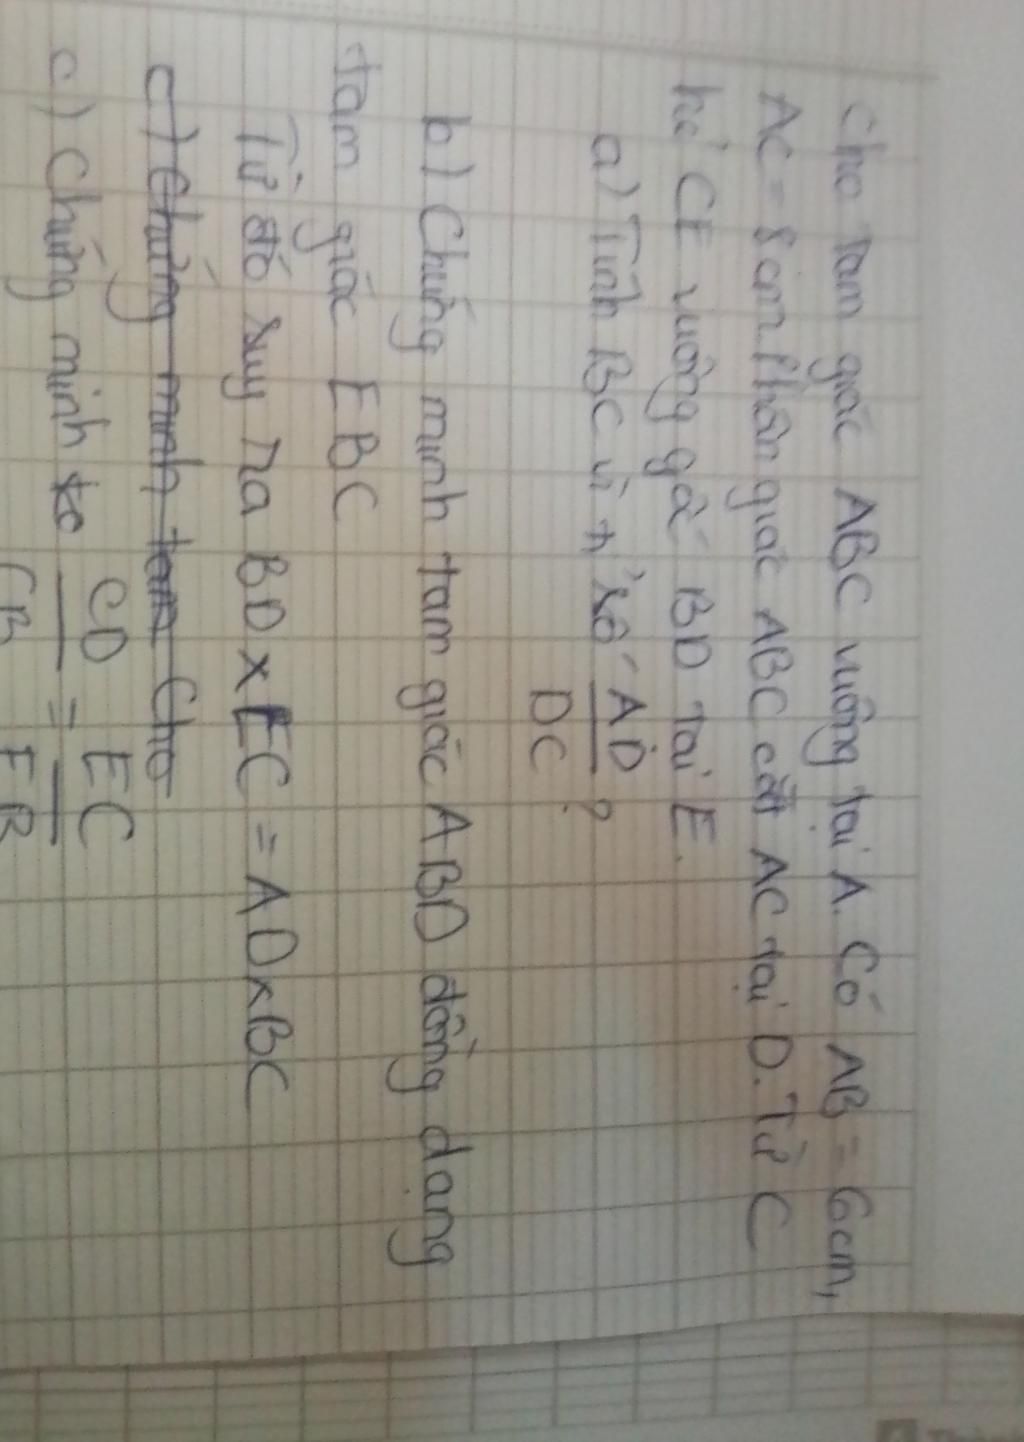 Cho tam giác ABC vuông tại A. Có AB = 6cm,
AC = 8cm. Phân giác ABC cắt AC tại D. Từ C
kẻ CE vuông góc BD tại E.
a) Tính BC và tỉ số AD/DC ?
b) Chứng minh tam giác ABD đồng dạng
tam giác EBC
Từ đó suy ra BD x EC = AD x BC
c) Chứng minh tam Cho
c) Chứng minh CD/CB = EC/EB